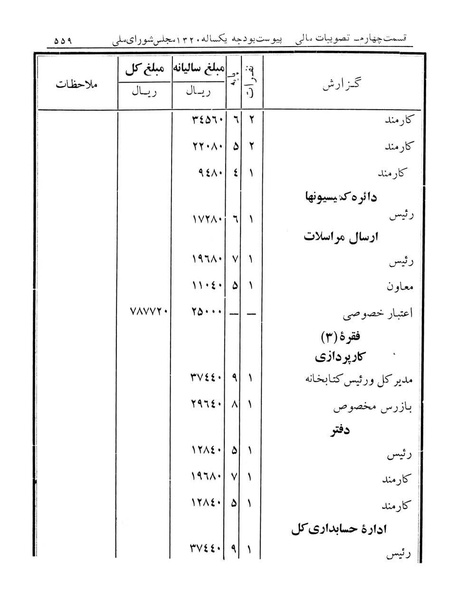 قسمت چهارم ـ تصویبات مالی پیوست بودجه یکساله ۱۳۲۰ مجلس شورای ملی ۵۵۹
گزارش نفرات پایه مبلغ سالیانه مبلغ کل ملاحظات
ریال ریال
کارمند ۲ ۶ ۳۴۵۶۰
کارمند ۲ ۵ ۲۲۰۸۰
کارمند ۱ ۴ ۹۴۸۰
دائره کمیسیونها
رئیس ۱ ۶ ۱۷۲۸۰
ارسال مراسلات
رئیس ۱ ۷ ۱۹۶۸۰
معاون ۱ ۵ ۱۱۰۴۰
اعتبار خصوصی — — ۲۵۰۰۰ ۷۸۷۷۲۰
فقرهٔ (۳)
کارپردازی
مدیر کل و رئیس کتابخانه ۱ ۹ ۳۷۴۴۰
بازرس مخصوص ۱ ۸ ۲۹۶۴۰
دفتر
رئیس ۱ ۵ ۱۲۸۴۰
کارمند ۱ ۷ ۱۹۶۸۰
کارمند ۱ ۵ ۱۲۸۴۰
ادارهٔ حسابداری کل
رئیس ۱ ۹ ۳۷۴۴۰